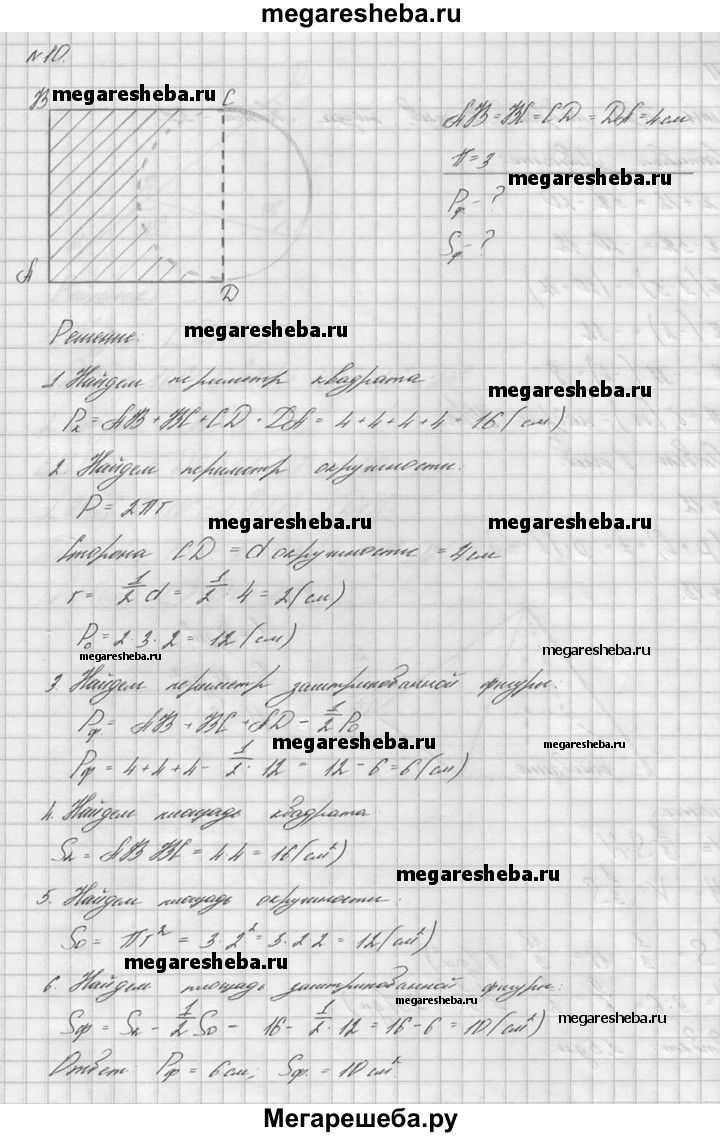 megaresheba.ru
№10.
B megaresheba.ru C
AB = BC = CD = DA = 4 см
π = 3
megaresheba.ru
Pф - ?
Sф - ?
A
D
Решение: megaresheba.ru
1. Найдем периметр квадрата
megaresheba.ru
Pк = AB + BC + CD + DA = 4 + 4 + 4 + 4 = 16 (см)
2. Найдем периметр окружности:
P = 2πr
megaresheba.ru megaresheba.ru
Сторона CD = d окружности = 4 см
r = 1/2 d = 1/2 · 4 = 2 (см)
Pо = 2 · 3 · 2 = 12 (см)
megaresheba.ru megaresheba.ru
3. Найдем периметр заштрихованной фигуры:
Pф = AB + BC + AD - 1/2 Pо
megaresheba.ru megaresheba.ru
Pф = 4 + 4 + 4 - 1/2 · 12 = 12 - 6 = 6 (см)
4. Найдем площадь квадрата
Sк = AB · BC = 4 · 4 = 16 (см²)
megaresheba.ru
5. Найдем площадь окружности:
Sо = πr² = 3 · 2² = 3 · 2 · 2 = 12 (см²)
megaresheba.ru
6. Найдем площадь заштрихованной фигуры:
megaresheba.ru
Sф = Sк - 1/2 Sо = 16 - 1/2 · 12 = 16 - 6 = 10 (см²)
megaresheba.ru
Ответ: Pф = 6 см; Sф = 10 см².
Мегарешеба.ру